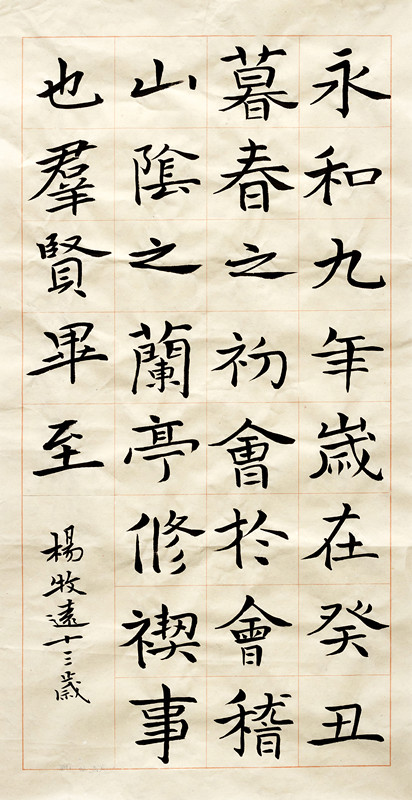 永和九年歲在癸丑
暮春之初會於會稽
山陰之蘭亭修禊事
也羣賢畢至
楊牧遠十三歲